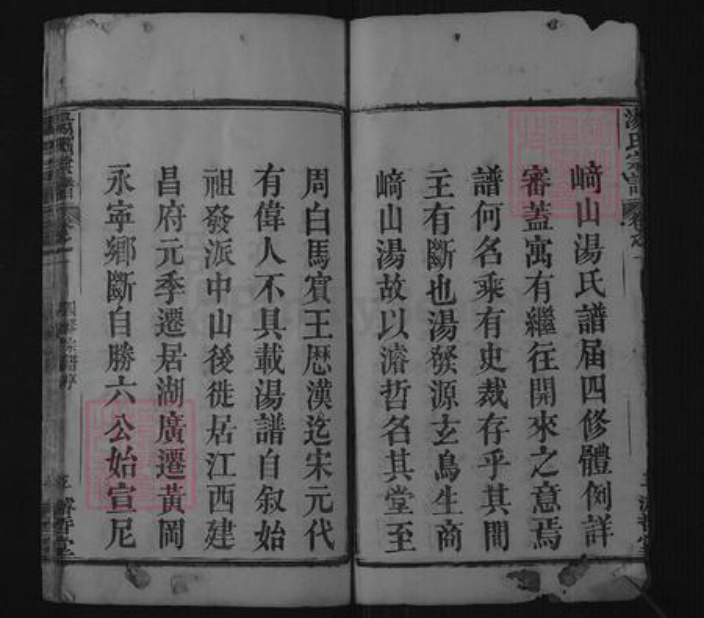 﨑山湯氏譜屆四修體例詳
審蓋寓有繼往開來之意焉
譜何名乘有史裁存乎其間
主有斷也湯發源玄鳥生商
﨑山湯故以濬哲名其堂至
周白馬賓王歷漢迄宋元代
有偉人不具載湯譜自叙始
祖發派中山後徙居江西建
昌府元季遷居湖廣遷黃岡
永寧鄉斷自勝六公始宣尼
湯氏宗譜
卷之一